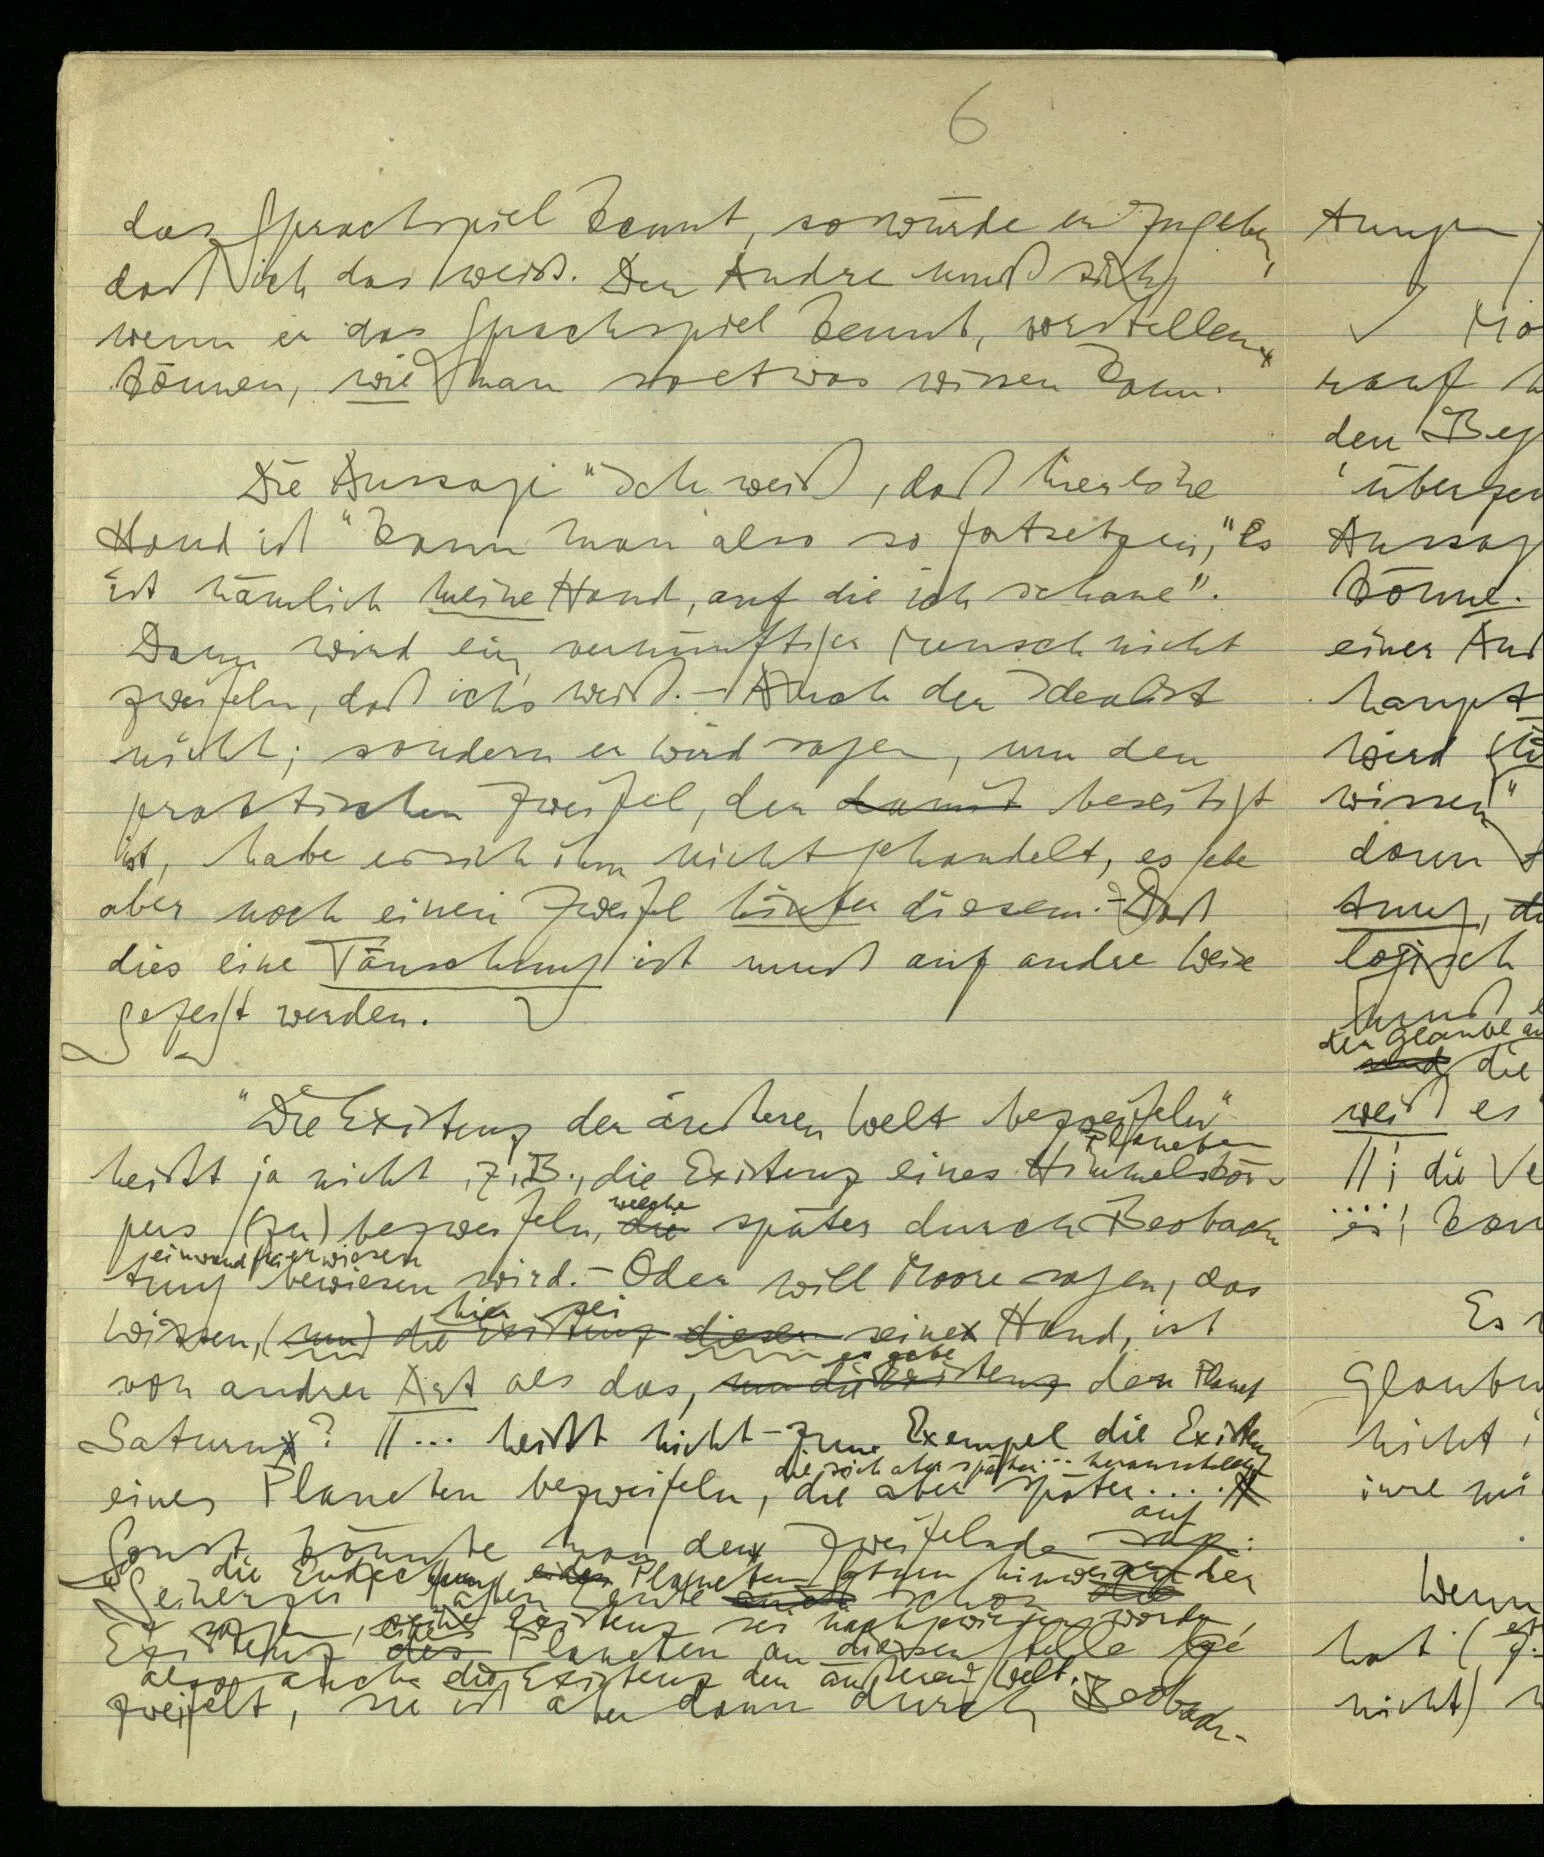 6
das Sprachspiel kennt, so würde er zugeben,
daß ich das weiß. Der Andre muß sich,
wenn er das Sprachspiel kennt, vorstellen
können, wie man so etwas wissen kann.
Die Aussage "Ich weiß, daß hier eine
Hand ist" kann man also so fortsetzen, "Es
ist nämlich meine Hand, auf die ich schaue".
Dann wird ein vernünftiger Mensch nicht
zweifeln, daß ich's weiß. – Auch der Idealist
nicht; sondern er wird sagen, um den
praktischen Zweifel, der damit beseitigt
ist, habe es sich ihm nicht gehandelt, es gebe
aber noch einen Zweifel hinter diesem. – Daß
dies eine Täuschung ist muß auf andre Weise
gezeigt werden.
"Die Existenz der äußeren Welt bezweifeln"
Planeten
heißt ja nicht, z.B., die Existenz eines Himmelskör-
welche
pers (zu) bezweifeln, die später durch Beobach
einwandfrei erwiesen
tung bewiesen wird. – Oder will Moore sagen, das
hier sei
Wissen, (um) die Existenz dieser seiner Hand, ist
es gebe
von andrer Art als das, um die Existenz den Planet
Saturn? // ... heißt nicht – zum Exempel die Existenz
eines Planeten bezweifeln, die aber später ....
die sich aber später ... herausstellt
auf
Sonst könnte man den Zweifelnden sag:
die Entdeckung eines Planeten Saturn hinweisen
Seinerzeit hätten Leute auch schon die
sagen, seine Existenz sei nachgewiesen worden,
Existenz des Planeten an dieser Stelle be
also auch die Existenz der äußeren Welt.
zweifelt, sie ist aber dann durch Beobach-
tungen
✓
rauf
den
Aussag
könne.
einer
haupt
wird
wissen"
dann
logisch
muß
der Glaube an
sind die
weiß es
// ; die
es
Es
Glauben
nicht
Wenn
hat
nicht)